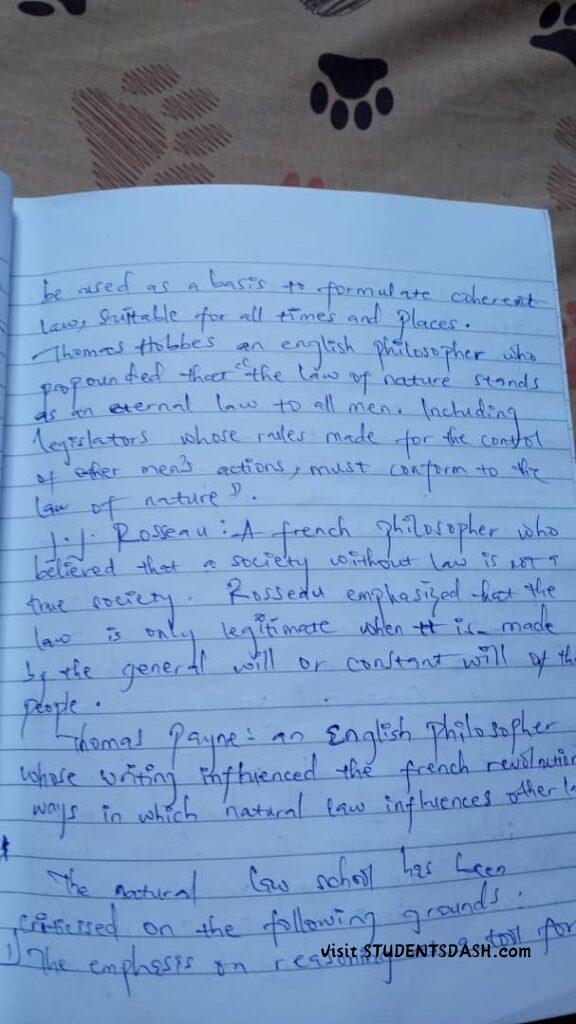 be used as a basis to formulate coherent
law, suitable for all times and places.
Thomas Hobbes an english philosopher who
propounded that "the law of nature stands
as an eternal law to all men. Including
legislators whose rules made for the control
of other men's actions, must conform to the
law of nature".
J.J. Rosseau: A french philosopher who
believed that a society without law is not a
true society. Rosseau emphasized that the
law is only legitimate when it is made
by the general will or constant will of the
people.
Thomas Payne: an English philosopher
whose writing influenced the french revolution
ways in which natural law influences other
The natural law school has been
criticised on the following grounds.
1) The emphasis on reasoning tool for
visit STUDENTSDASH.com